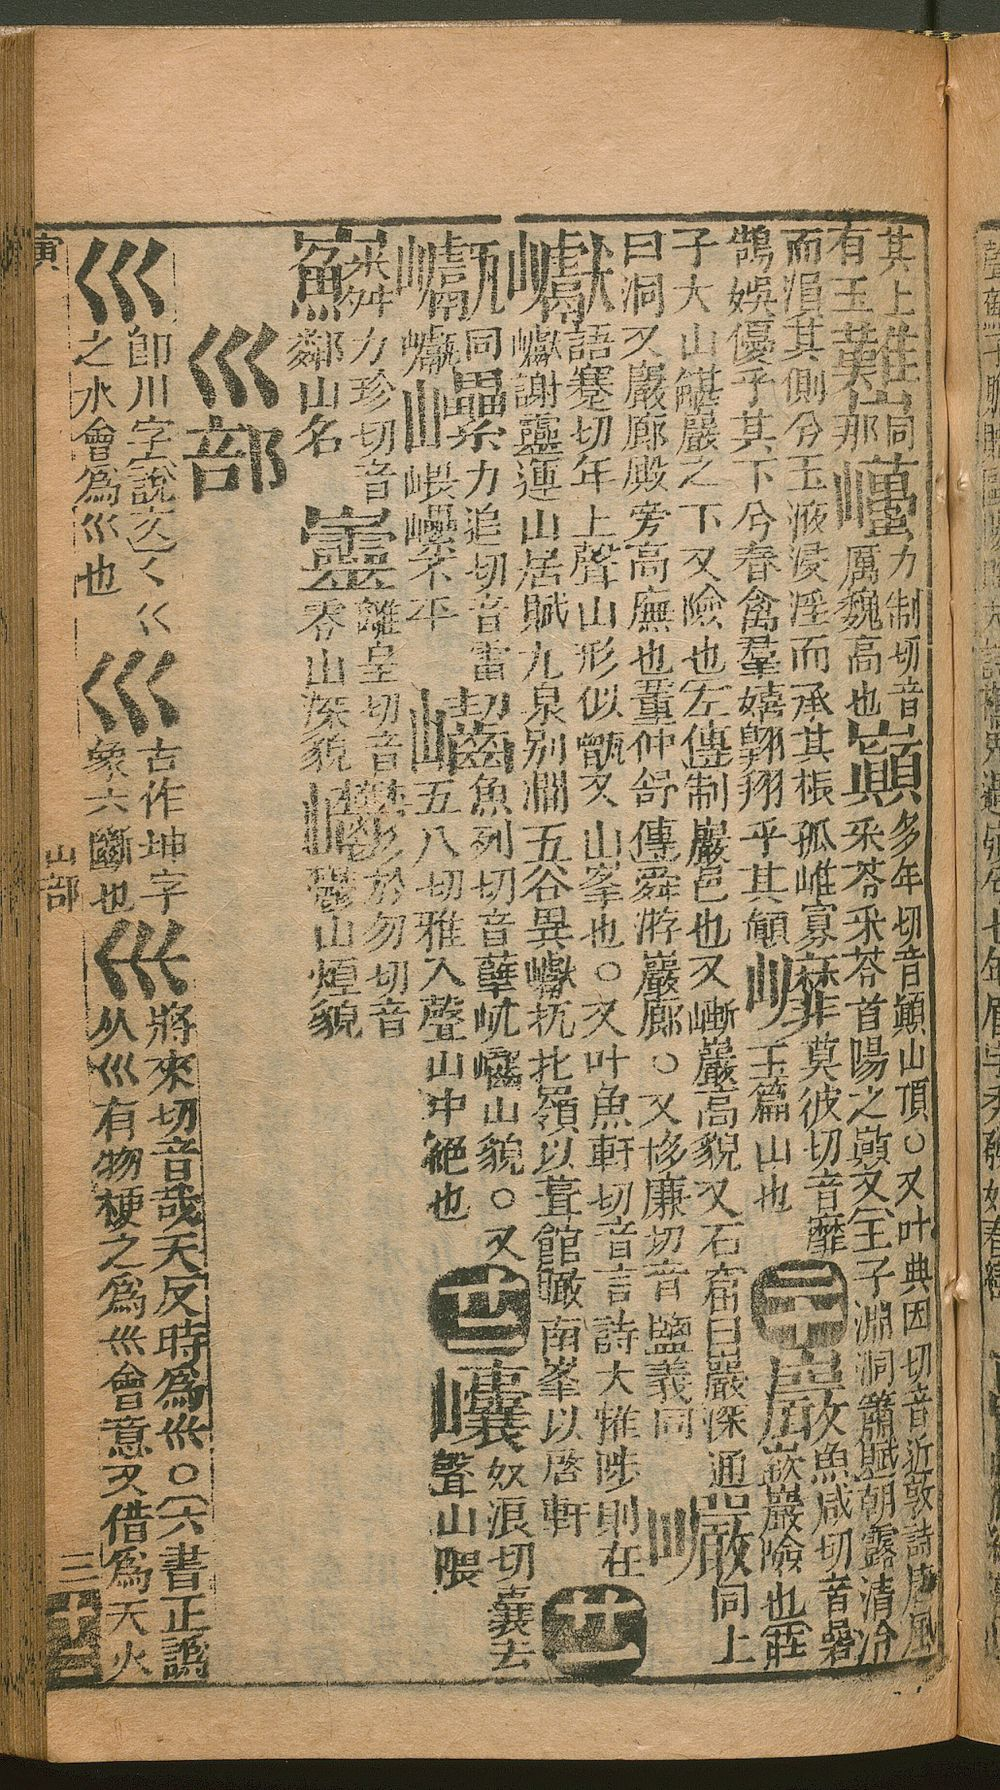 其上有玉 同那 巁 力制切音厲巍高也 巔 多年切音顚山頂○又叶典因切音近敦詩唐風采苓采苓首陽之巔又王子淵洞簫賦朝露清泠
而湏其側兮玉液浸淫而承其根孤雌寡鶴娛優乎其下兮春禽羣嬉翺翔乎其顚 𡿖 莫彼切音靡玉篇山也 二十 巖 魚咸切音碞嶔巖險也莊
子大山嵁巖之下又險也左傳制巖邑也又嶃巖高貌又石窟曰巖深通曰洞又巖廊殿旁高廡也董仲舒傳舜游巖廊○又移廉切音鹽義同 巗 同上
巘 語蹇切年上聲山形似甑又山峯也○又叶魚軒切音言詩大雅陟則在巘謝靈運山居賦九泉別澗五谷異巘抗北嶺以葺館瞰南峯以啓軒 廿一
同巘 力追切音雷㟪㠥不平 魚列切音孽屼巕山貌○又五八切雅入聲山中絕也 廿二 奴浪切囊去聲山隈
力珍切音鄰山名 離呈切音零山深貌 於勿切音鬱山煙貌
巛部
巛 卽川字說文𡿨巜之水會爲巛也 巛 古作坤字象六斷也 𡿧 將來切音哉天反時爲𡿧○六書正譌从巛有物梗之爲𡿧會意又借爲天火
寅 山部 三 廿二